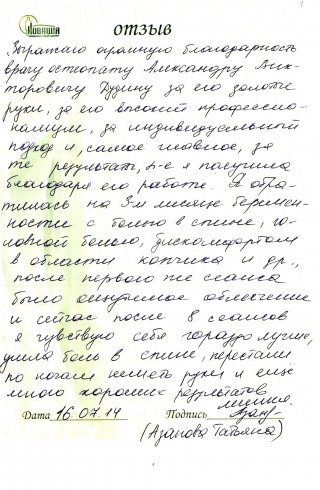 ОТЗЫВ
Выражаю огромную благодарность
врачу остеопату Александру Вик-
торовичу Дудину за его золотые
руки, за его высокий профессио-
нализм, за индивидуальный
подход и, самое главное, за
те результаты, к-е я получила
благодаря его работе. Я обра-
тилась на 3м месяце беремен-
ности с болью в спине, го-
ловной болью, дискомфортом
в области копчика и др.,
после первого же сеанса
было ощутимое облегчение
и сейчас после 8 сеансов
я чувствую себя гораздо лучше,
ушла боль в спине, перестали
по ночам неметь руки и ещё
много хороших результатов
лечения.
Дата 16.07.14 Подпись
(Азанова Татьяна)